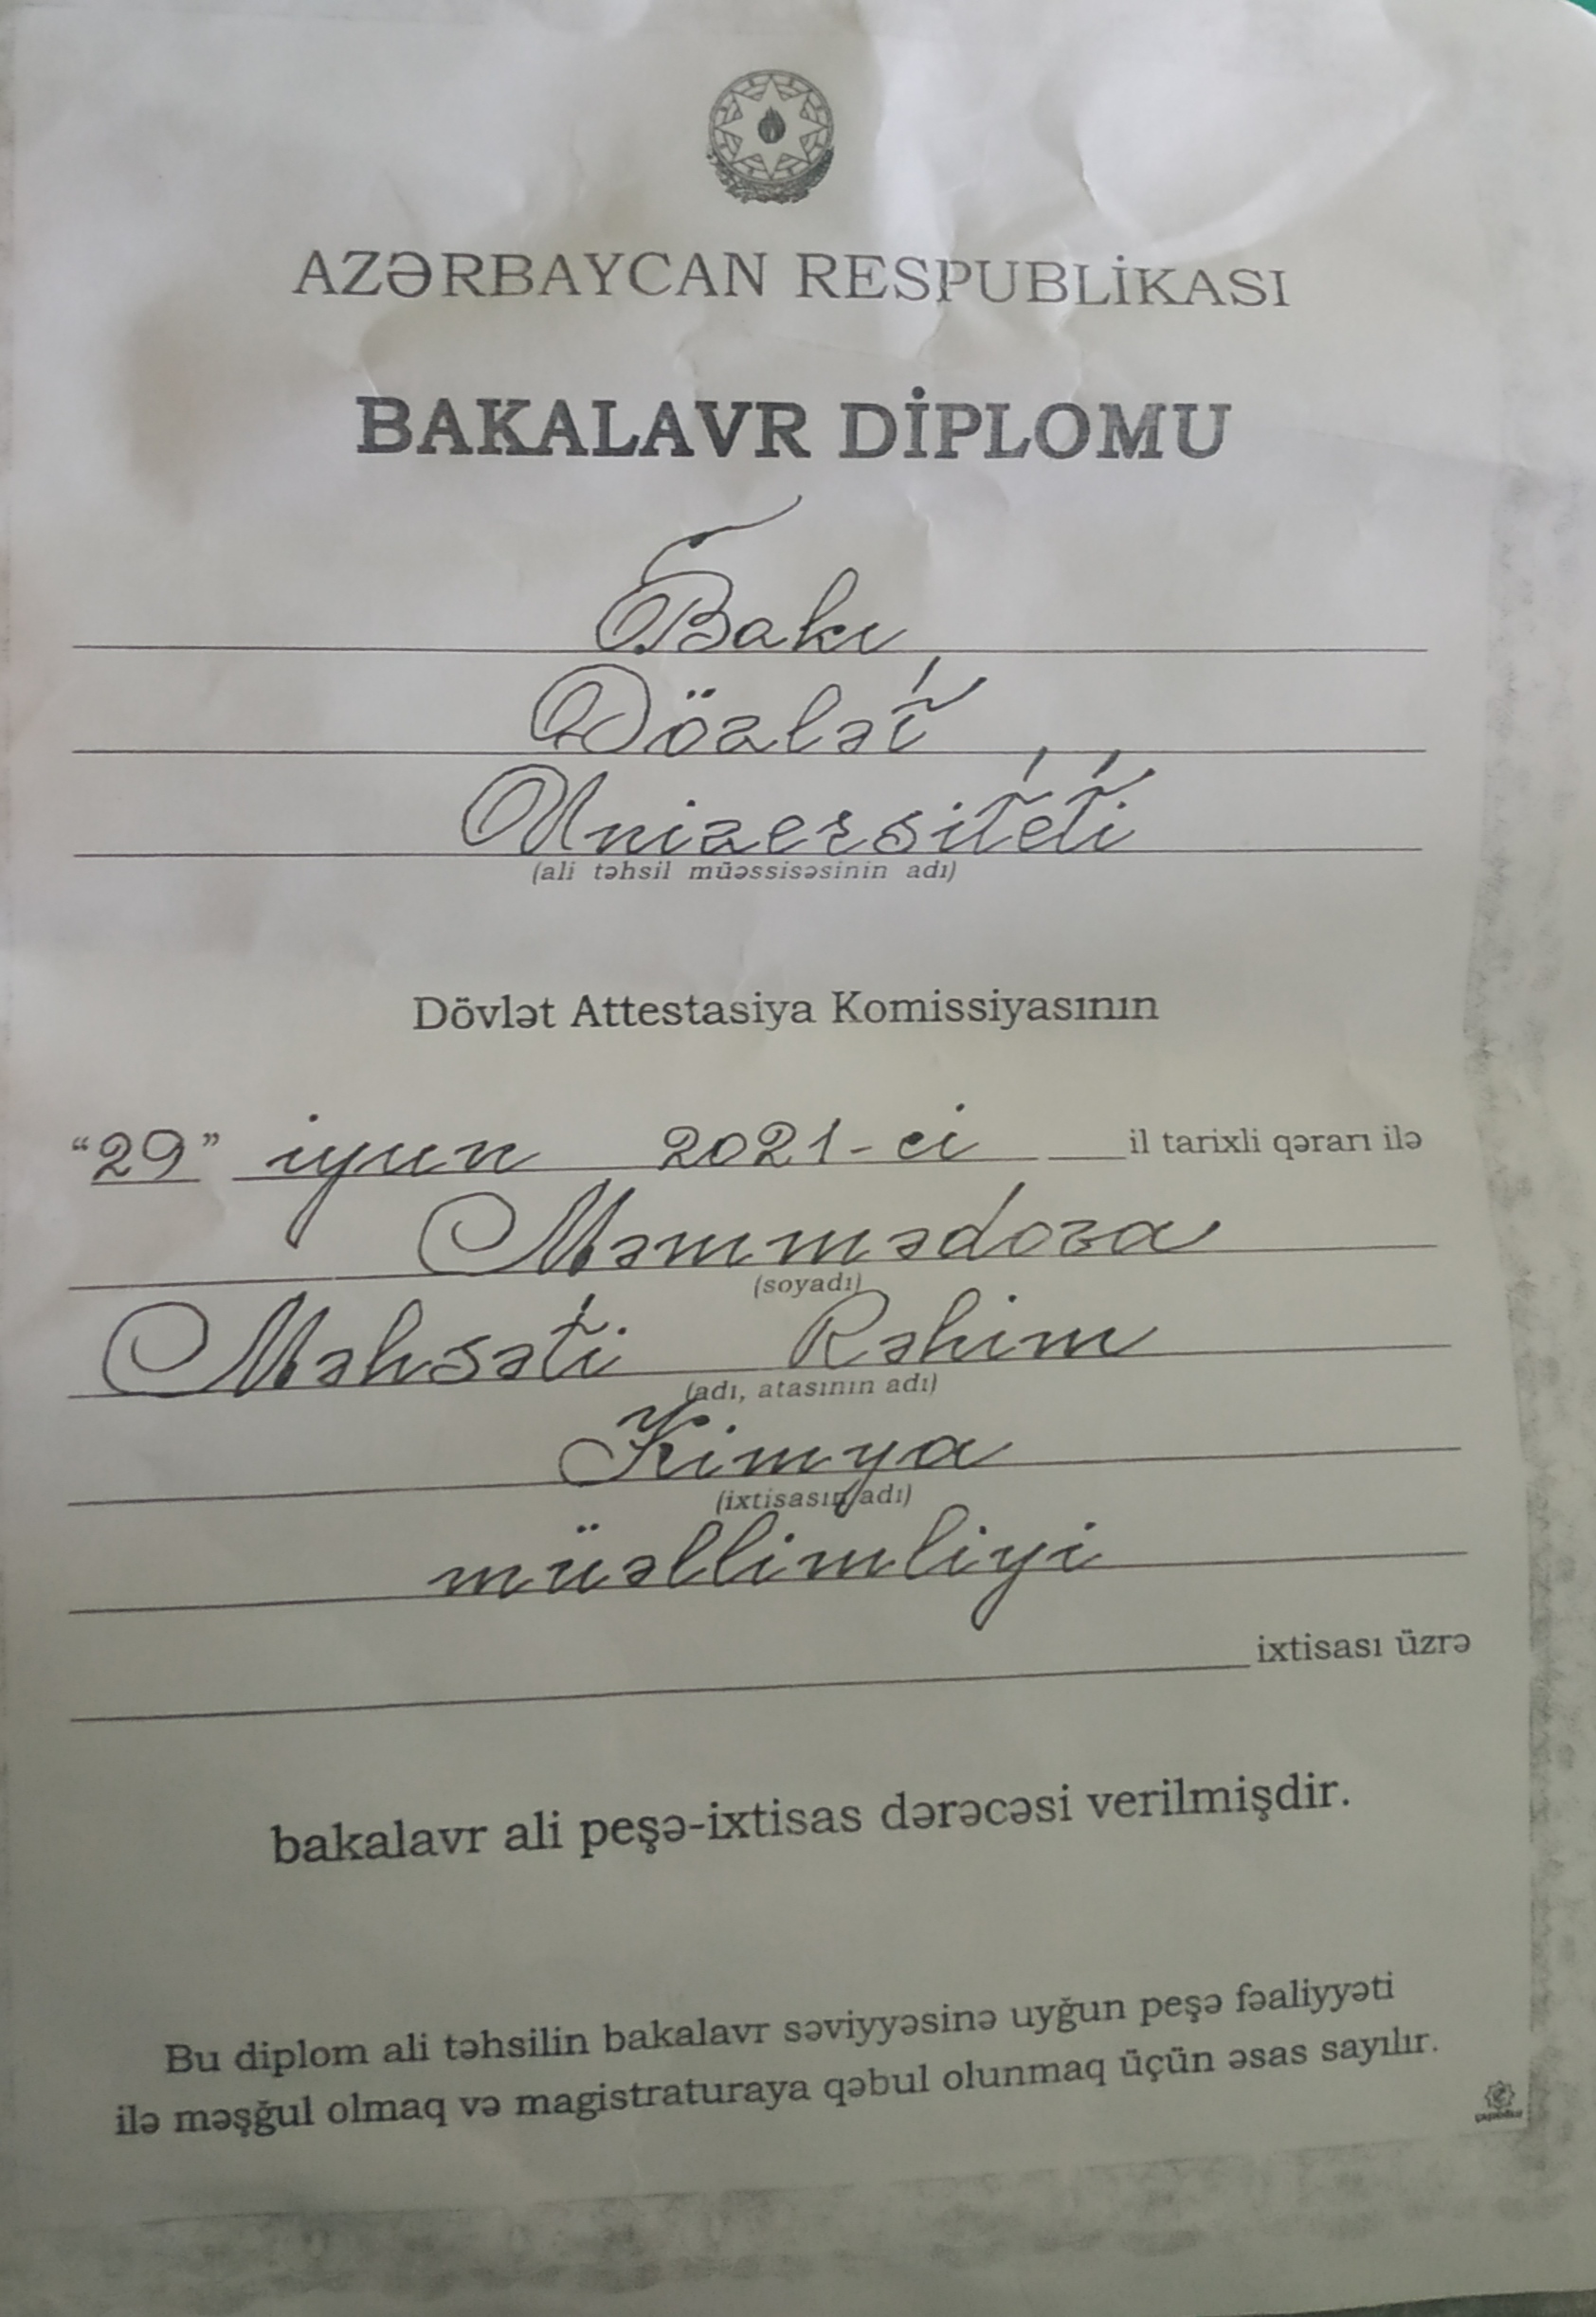 AZƏRBAYCAN RESPUBLİKASI
BAKALAVR DİPLOMU
Bakı
Dövlət
Universiteti
(ali təhsil müəssisəsinin adı)
Dövlət Attestasiya Komissiyasının
“29” iyun 2021-ci il tarixli qərarı ilə
Məmmədova
(soyadı)
Məhsəti Rəhim
(adı, atasının adı)
Kimya
(ixtisasın adı)
müəllimliyi
ixtisası üzrə
bakalavr ali peşə-ixtisas dərəcəsi verilmişdir.
Bu diplom ali təhsilin bakalavr səviyyəsinə uyğun peşə fəaliyyəti
ilə məşğul olmaq və magistraturaya qəbul olunmaq üçün əsas sayılır.